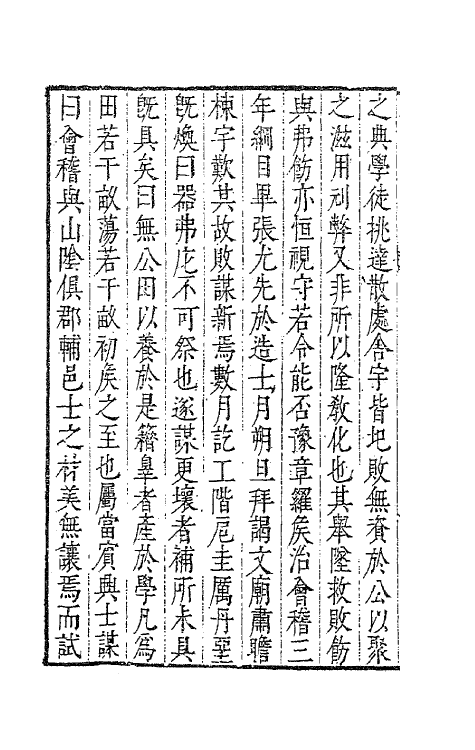 之典學徒挑達散處舍宇皆圮敗無資於公以聚
之滋用刓弊又非所以隆敎化也其舉墜救敗飭
與弗飭亦恒視守若令能否豫章羅矦治會稽三
年綱目畢張尤先於造士月朔旦拜謁文廟肅瞻
棟宇歎其故敗謀新焉數月訖工階戺圭厲丹堊
旣煥曰器弗庀不可祭也遂謀更壞者補所未具
旣具矣曰無公囷以養於是籍辠者產於學凡爲
田若干畝蕩若干畝初矦之至也屬當賔興士謀
曰會稽與山陰俱郡輔邑士之材美無讓焉而試